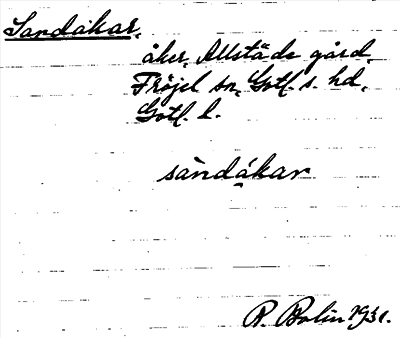 Sandåkar,
åker, Allstäde gård,
Fröjel sn, Gotl. s. hd,
Gotl. l.
sàndákar
R. Bolin 1931.